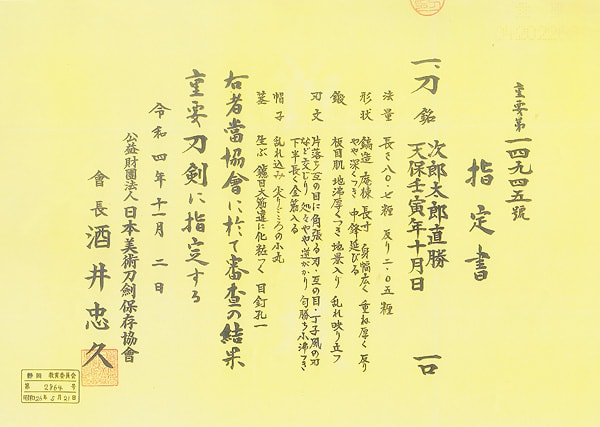 重要第一四九四五號
指定書
一、刀 銘 次郎太郎直勝 天保壬寅年十月日 一口
法量 長さ八〇.七糎 反り二.〇五糎
形状 鎬造 庵棟 長寸 身幅広く 重ね厚く 反り
やや深くつき 中鋒延びる
鍛 板目肌 地沸厚くつき 地景入り 乱れ映り立つ
刃文 片落ち互の目に角張る刃・互の目・丁子風の刃
など交じり 処々やや逆がかり 匂勝ち小沸つき
下半長く金筋入る
帽子 乱れ込み 尖りごころの小丸
茎 生ぶ 鑢目大筋違に化粧つく 目釘孔一
右者當協會に於て審査の結果
重要刀剣に指定する
令和四年十一月二日
公益財團法人日本美術刀劍保存協會
會長 酒井忠久
静岡 教育委員会
第 2864 号
昭和26年5月21日